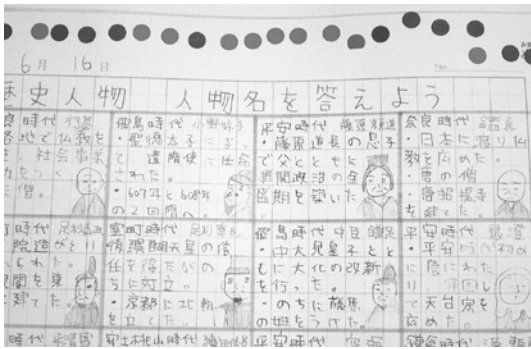 6月 16日
史人物 人物名を答えよう
良時代 行基
各地で仏教を
き、社会事業
力をつく
僧。
飛鳥時代 小野妹子
・聖徳太子によ
って、遣隋使に任命
された。
・607年と608年
の2回隋へ
平安時代 藤原頼通
・藤原道長の息子
で父とともに
摂関政治の全
盛期を築いた
奈良時代 鑑真
・日本に渡り仏
教を広めた
・唐の僧
・唐招提寺
を建てた。
町時代 足利義政
院造がとり
られた。
銀閣を東
建てた。
室町時代 足利尊氏
後醍醐天皇の信
任を得たがの
ちに対立。
・京都に北朝
を立てた。
飛鳥時代 中臣鎌足
・中大兄皇子とと
もに大化の改新
を行った。
・のちに藤原
の姓をうけた。
平安時代 最澄
・平安時代初め
に唐にわた
り、帰国し
て天台宗を
広めた。
時代 平清盛
安土桃山時代 織田信長
平安時代 空海
鎌倉時代